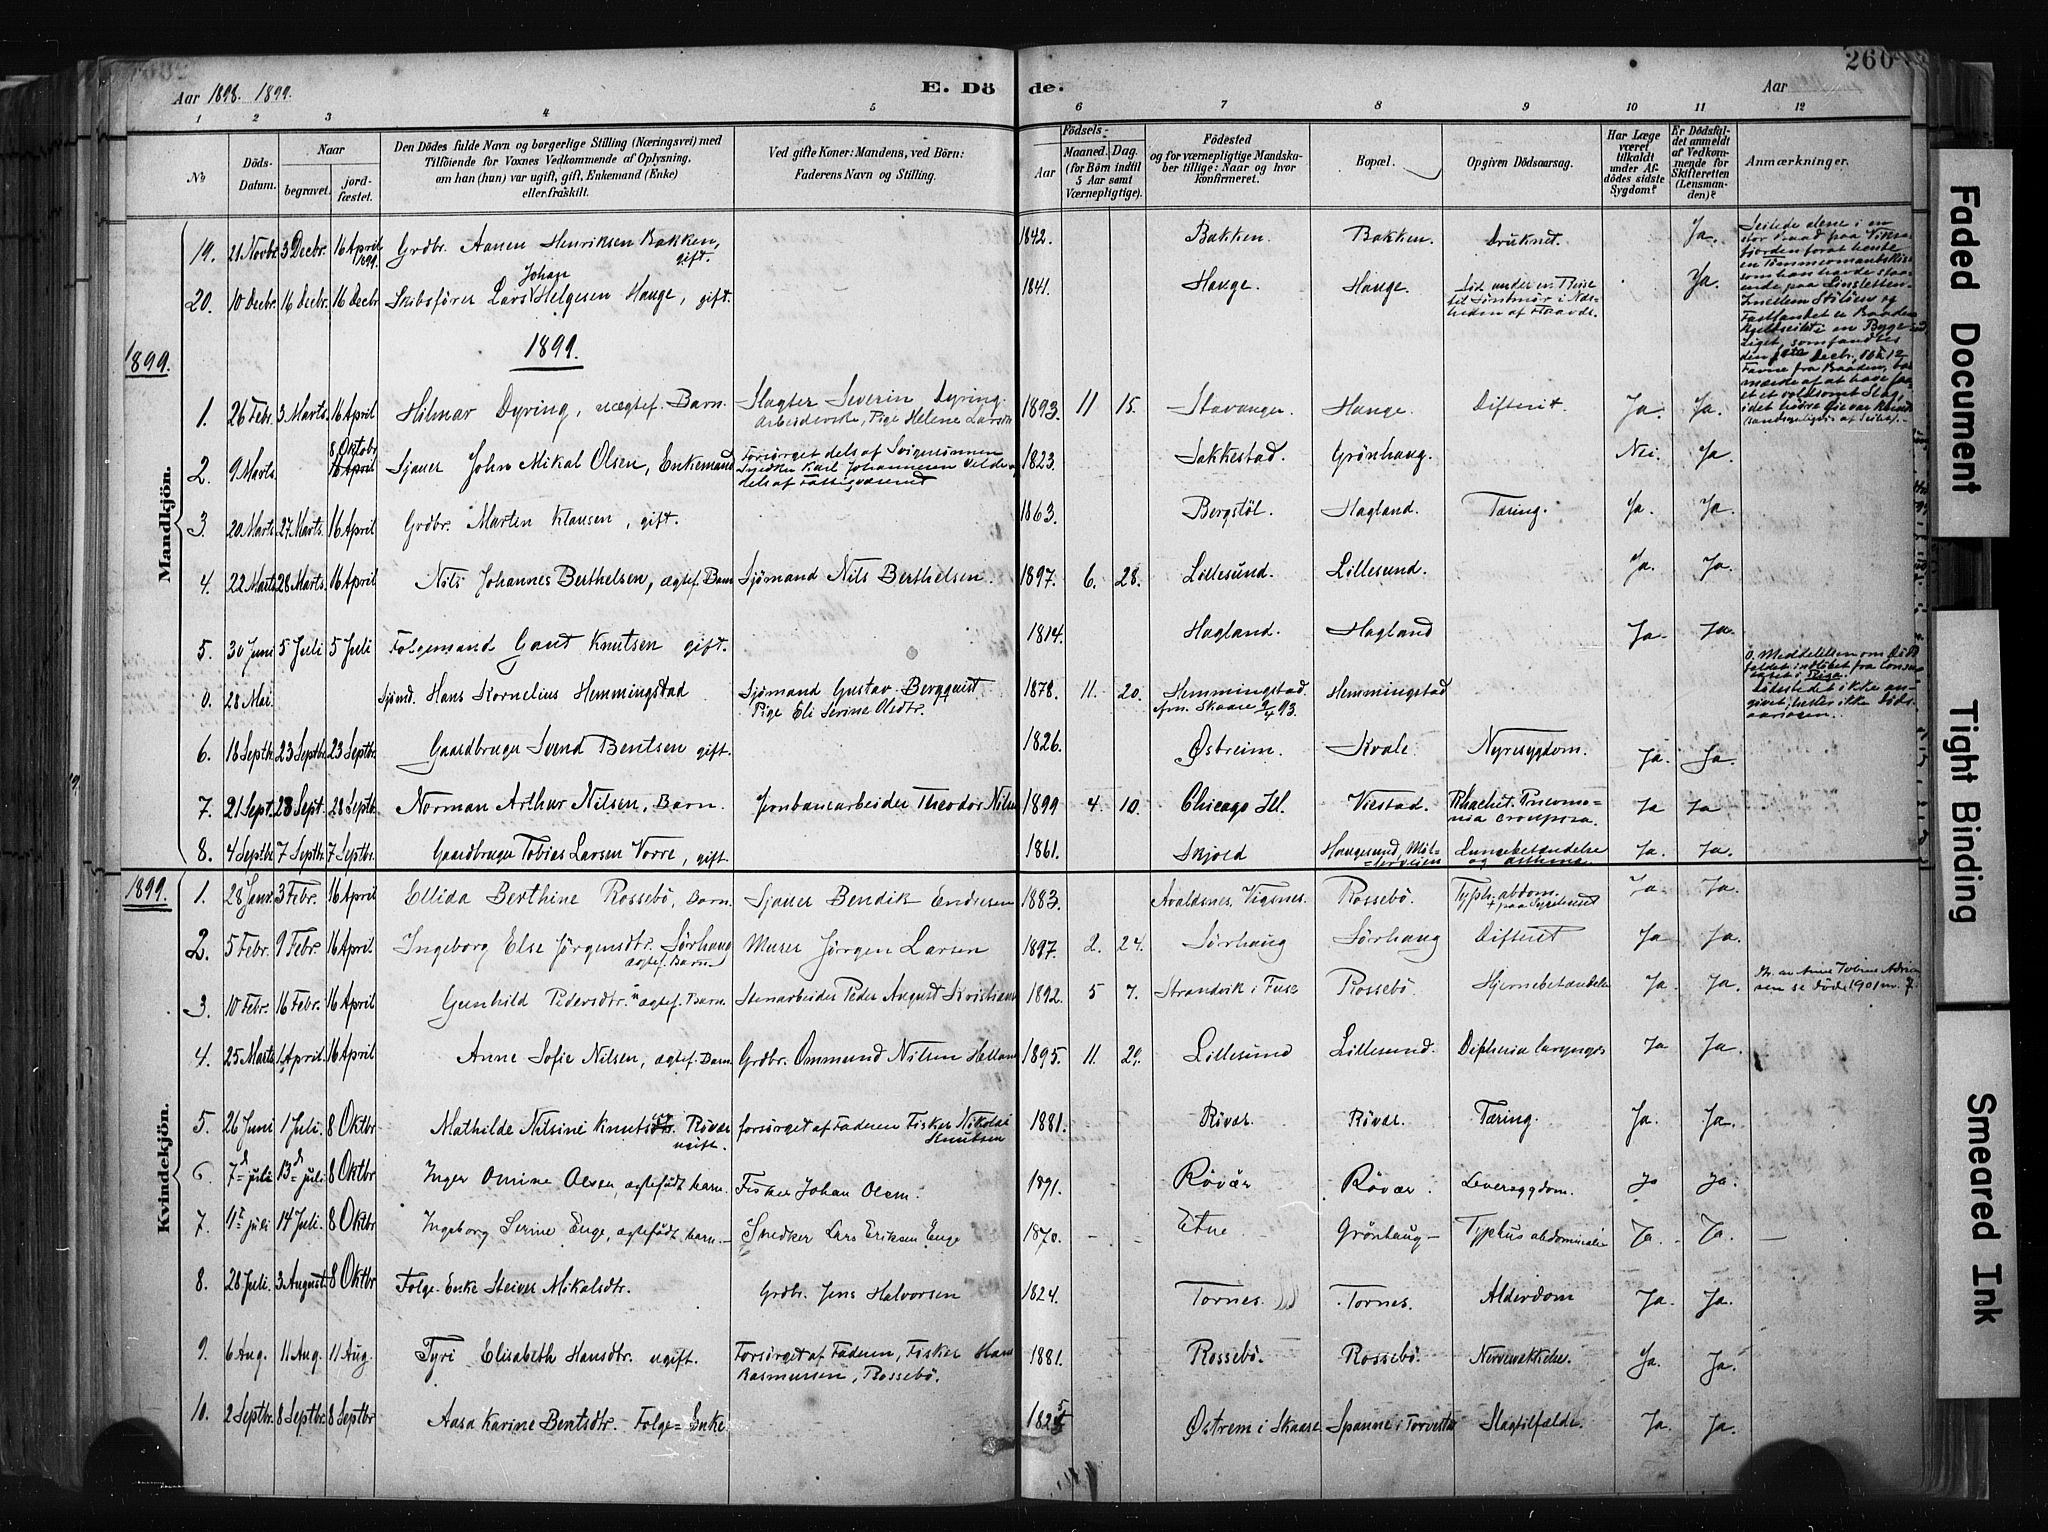 260
Aar 1898. 1899.
E. Döde.
Aar
1 2 3 4 5 6 7 8 9 10 11 12
No
Döds-Datum.
Naar
begravet.
jord-fæstet.
Den Dödes fulde Navn og borgerlige Stilling (Næringsvei) med
Tilföiende for Voxnes Vedkommende af Oplysning,
om han (hun) var ugift, gift, Enkemand (Enke)
eller fraskilt.
Ved gifte Koner: Mandens, ved Börn:
Faderens Navn og Stilling.
Födsels-
Aar
Maaned. Dag.
(for Börn indtil
5 Aar samt
Værnepligtige).
Födested
og for værnepligtige Mandska-
ber tillige: Naar og hvor
konfirmeret.
Bopæl.
Opgiven Dödsaarsag.
Har Læge
været
tilkaldt
under Af-
dödes sidste
Sygdom?
Er Dödsfal-
det anmeldt
af Vedkom-
mende for
Skifteretten
(Lensman-
den)?
Anmærkninger.
Mandkjön.
19. 21 Novbr. 3 Decbr. 16 April 1899. Grdbr. Aanen Henriksen Bakken, gift. 1842. Bakken. Bakken. Druknet. Ja.
20. 10 Decbr. 16 Decbr. 16 Decbr. Skibsfører Lars Johan Helgesen Hauge, gift. 1841. Hauge. Hauge. Ja.
1899.
1899.
1. 26 Febr. 3 Marts. 16 April Hilmar Dyring, uægtef. Barn. Slagter Severin Dyring. Pige Helene 1893. 11 15. Stavanger. Hauge. Difterit. Ja. Ja.
2. 9 Marts. 8 Oktobr. Sjauer John Mikal Olsen, Enkemand Forsørget dels af Svigersønnen Snedker Karl Johannesen dels af Fattigvæsenet 1823. Sakkestad. Grönhaug. Nei. Ja.
3. 20 Marts 27 Marts. 16 April Grdbr. Marten Klausen, gift. 1863. Bergstöl. Hagland. Tæring. Ja. Ja.
4. 22 Marts 28 Marts. 16 April Nils Johannes Berthelsen, ægtef. Barn Sjömand Nils Berthelsen. 1897. 6. 28. Lillesund. Lillesund. Ja. Ja.
5. 30 Juni 5 Juli 5 Juli Folgemand Gaut Knutsen gift. 1814. Hagland. Hagland Ja. Ja.
0. 28 Mai. Sjömd. Hans Kornelius Hemmingstad Sjömand Gustav Bergquist Pige Eli Serine Olsdtr. 1878. 11. 20. Hemmingstad. Skaare 2/4 93. Hemmingstad 0. Meddelelsen om Dödsfaldet indløbet fra Consulatet i Riga. Dødsstedet ikke angivet, heller ikke Dødsaarsagen.
6. 18 Septbr. 23 Septbr. 23 Septbr. Gaardbruger Svend Bentsen gift. 1826. Østreim. Kvale. Nyresygdom. Ja. Ja.
7. 21 Sept. 28 Sept. 28 Septbr. Norman Arthur Nilsen, Barn. Jernbanearbeider Theodor Nilsen 1899 4. 10. Chicago Ill. Viestad. Rhachit. Pneumonia crouposa. Ja Ja
8. 4 Septbr. 7 Septbr. 7 Septbr. Gaardbruger Tobias Larsen Vorre, gift. 1861. Skjold Haugesund, Lungebetændelse og Asthma Ja. Ja.
Kvindekjön.
1899.
1. 28 Janr. 3 Febr. 16 April Ellida Berthine Rossebö, Barn. Sjauer Bendik Endresen 1883. Avaldsnes, Vigsnes. Rossebö. Typh. abdom. + paa Sygehuset Ja. Ja.
2. 5 Febr. 9 Febr. 16 April Ingeborg Else Jörgensdtr. Sörhaug ægtef. Barn. Murer Jörgen Larsen 1897. 2. 24. Sörhaug Sörhaug Difterit Ja Ja.
3. 10 Febr. 16 Febr. 16 April Gunhild Pedersdtr. uægtef. Barn. Stenarbeider Peder August Kristians 1892. 5 7. Strandvik i Fuse Rossebö. Hjernebetændelse Ja. Ja.
4. 25 Marts 1 April. 16 April Anne Sofie Nilsen, ægtef. Barn. Grdbr. Ommund Nilsen 1895. 11. 29. Lillesund Lillesund. Diptheria laryngis Ja Ja.
5. 26 Juni 1 Juli. 8 Oktbr Mathilde Nilsine Knutsdtr. Rövær ugift. forsörget af Faderen Fisker Nikolai Knutsen 1881. Rövær. Rövær. Tæring. Ja. Ja.
6. 7d juli 13d juli 8 Oktbr Inger Omine Olsen, ægtefödt barn. Fisker Johan Olsen. 1891. Rövær Rövær. Leversygdom. Ja Ja.
7. 11 juli 14 Juli. 8 Oktbr Ingeborg Serine Enge, ægtefödt barn. Snedker Lars Eriksen Enge 1870. Etne Grönhaug Typhus abdominalis Ja. Ja.
8. 28 Juli. 3 August. 8 Oktbr Folge-Enke Steives Mikalsdtr. Grdbr. Jens Halvorsen 1824. Tornes. Tornes. Alderdom Ja. Ja.
9. 6 Aug. 11 Aug. 11 Aug. Tyri Elisabeth Hansdtr. ugift. Forsörget af Faderen, Fisker Hans Rasmussen, Rossebö. 1881. Rossebö. Rossebö. Ja. Ja.
10. 2 Septbr. 8 Septbr. 8 Septbr Aasa Karine Bentsdtr. Folge-Enke 1825 Østrem i Skaare Spanne i Torvestad Slagtilfælde. Ja. Ja.
Faded Document
Tight Binding
Smeared Ink